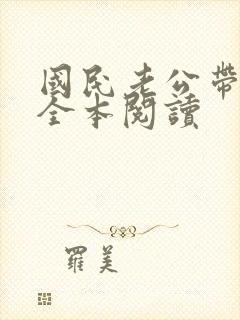 國民老公帶
全本閱讀
羅美